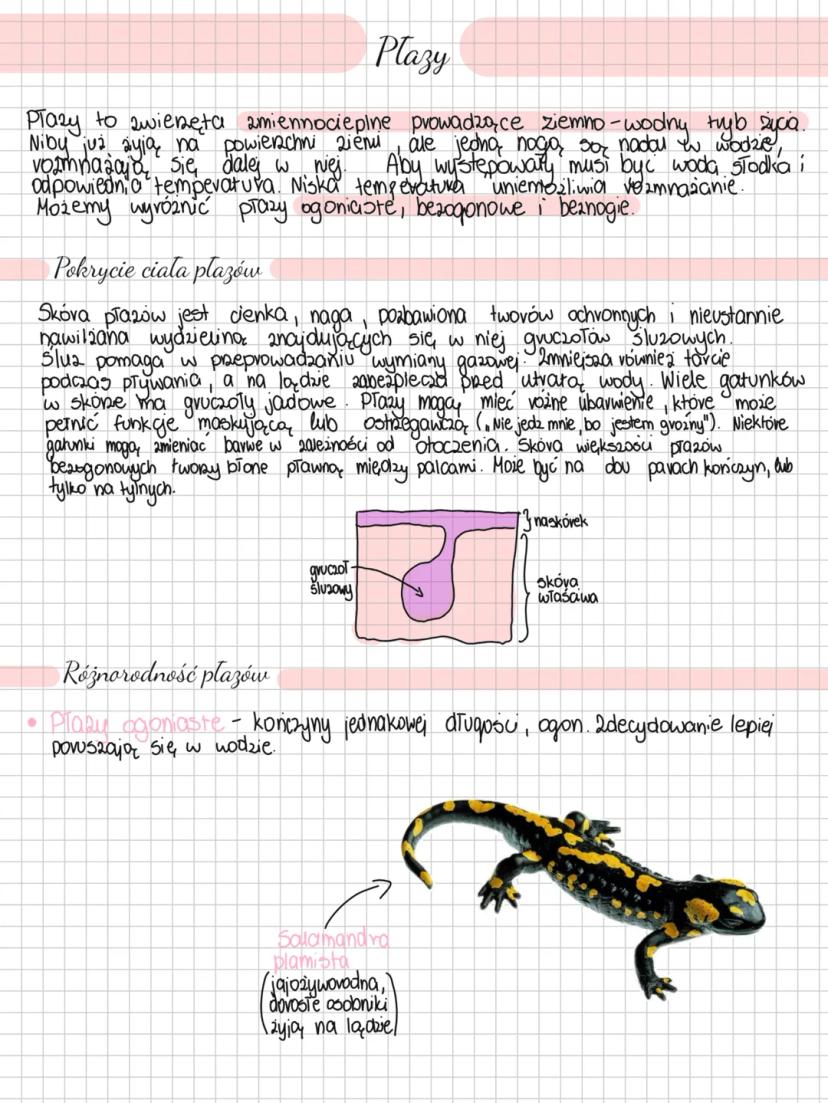 Płazy
Płazy to zwierzęta zmiennocieplne prowadzące ziemno-wodny tryb życia.
Niby już żyją na powierzchni ziemi, ale jedną nogą są nadal w wodzie,
rozmnażają się dalej w niej. Aby występowały musi być woda słodka i
odpowiednia temperatura. Niska temperatura uniemożliwia rozmnażanie.
Możemy wyróżnić płazy ogoniaste, bezogonowe i beznogie.
Pokrycie ciała płazów
Skóra płazów jest cienka, naga, pozbawiona tworów ochronnych i nieustannie
nawilżana wydzieliną znajdujących się w niej gruczołów śluzowych.
Śluz pomaga w przeprowadzaniu wymiany gazowej. Zmniejsza również tarcie
podczas pływania, a na lądzie zabezpiecza przed utratą wody. Wiele gatunków
w skórze ma gruczoły jadowe. Płazy mogą mieć różne ubarwienie, które może
pełnić funkcję maskującą lub ostrzegawczą („Nie jedz mnie, bo jestem groźny"). Niektóre
gatunki mogą zmieniać barwę w zależności od otoczenia. Skóra większości płazów
bezogonowych tworzy błonę pławną między palcami. Może być na dwu parach kończyn, lub
tylko na tylnych.
naskórek
gruczoł
śluzowy
skóra
właściwa
Różnorodność płazów
• Płazy ogoniaste - kończyny jednakowej długości, ogon. Zdecydowanie lepiej
poruszają się w wodzie.
Salamandra
plamista
(jajożyworodna,
dorosłe osobniki
żyją na lądzie)